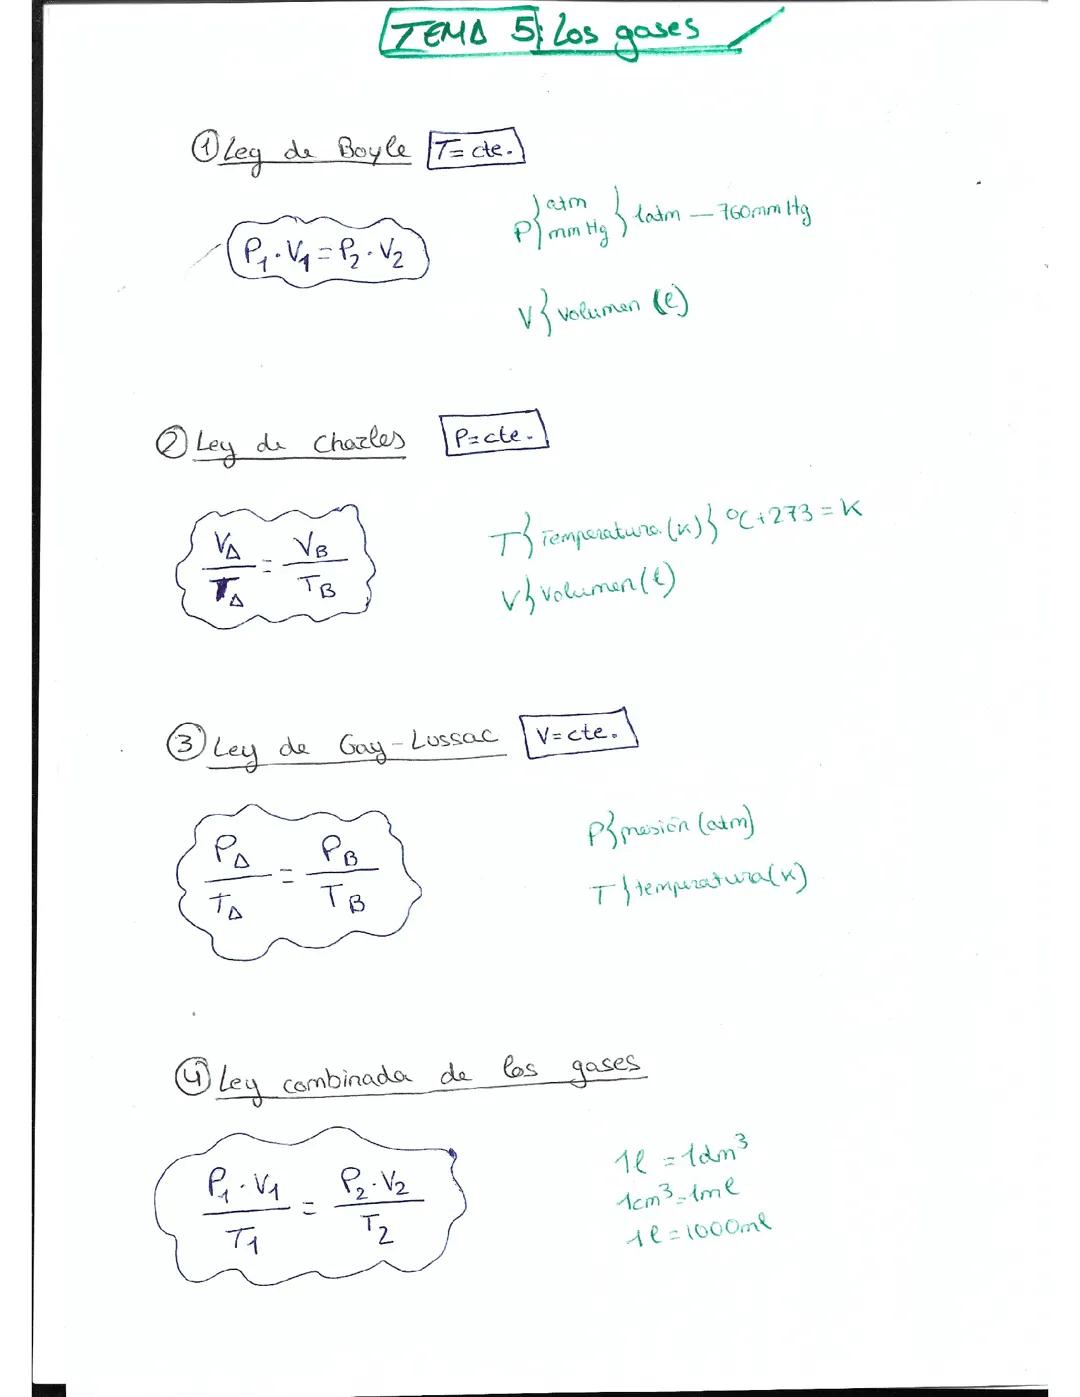 TEMA 5: Los gases
① Ley de Boyle T= cte.
P₁·V₁=P₂·V₂
P} atm mm Hg } 1atm — 760mm Hg
V} volumen (l)
② Ley de Charles P=cte.
V_A/T_A = V_B/T_B
T} Temperatura (K) } °C+273=K
V} Volumen (l)
③ Ley de Gay-Lussac V=cte.
P_A/T_A = P_B/T_B
P} presión (atm)
T} temperatura (K)
④ Ley combinada de los gases
P₁·V₁/T₁ = P₂·V₂/T₂
1l = 1dm³
1cm³=1ml
1l=1000ml